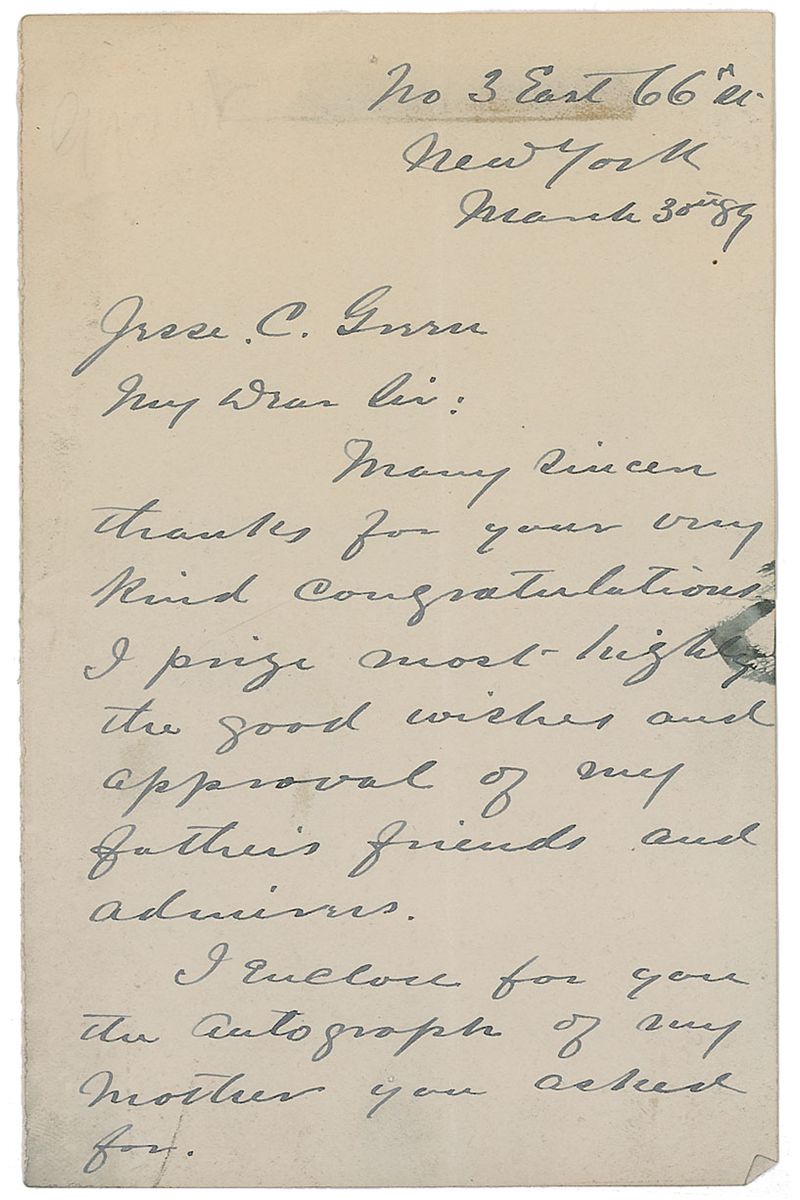 No 3 East 66th St.
New York
March 30th 89
Jesse. C. Green
My Dear Sir:
Many sincere
thanks for your very
kind congratulations
I prize most highly
the good wishes and
approval of my
father's friends and
admirers.
I Enclose for you
the Autograph of my
Mother you asked
for.